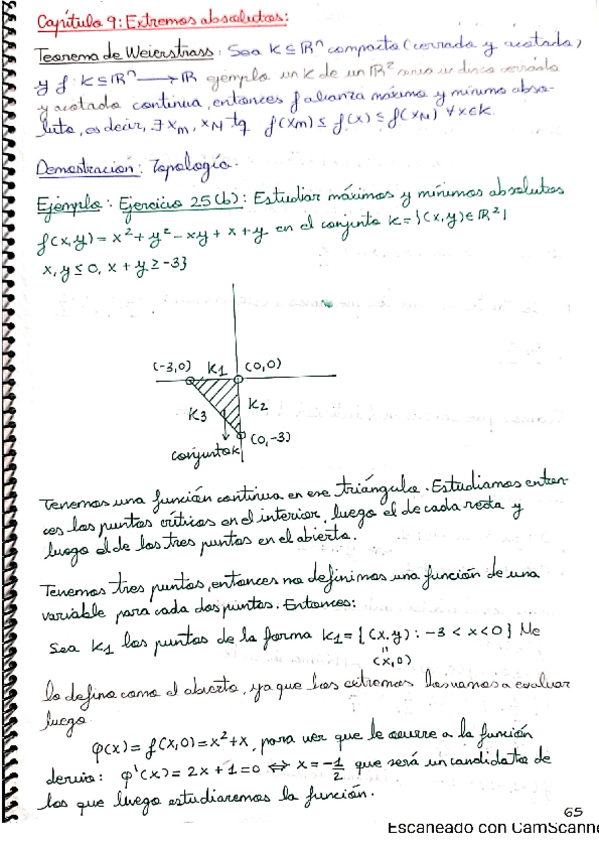 Capítulo 9: Extremos absolutos:
Teorema de Weierstrass: Sea K ⊆ ℝⁿ compacto (cerrado y acotado)
y f: K ⊆ ℝⁿ → ℝ ejemplo un K de un ℝ² sería un disco cerrado
y acotado continua, entonces f alcanza máximo y mínimo abso-
luto, es decir, ∃ xm, xM tq f(xm) ≤ f(x) ≤ f(xM) ∀x∈K.
Demostración: Topología.
Ejemplo: Ejercicio 25(b): Estudiar máximos y mínimos absolutos
f(x,y) = x² + y² - xy + x + y en el conjunto K = {(x,y) ∈ ℝ² |
x, y ≤ 0, x + y ≥ -3}
(-3,0) K1 (0,0)
K2
K3
(0,-3)
conjunto K
Tenemos una función continua en ese triángulo. Estudiamos enton-
ces los puntos críticos en el interior, luego el de cada recta y
luego el de los tres puntos en el abierto.
Tenemos tres puntos, entonces no definimos una función de una
variable para cada dos puntos. Entonces:
Sea K1 los puntos de la forma K1 = {(x,y) : -3 < x < 0} Me
"
(x,0)
lo defino como el abierto, ya que los extremos los vamos a evaluar
luego.
φ(x) = f(x,0) = x² + x, para ver que le ocurre a la función
derivo: φ'(x) = 2x + 1 = 0 ⇔ x = -1/2 que será un candidato de
los que luego estudiaremos la función.
65
Escaneado con CamScanne